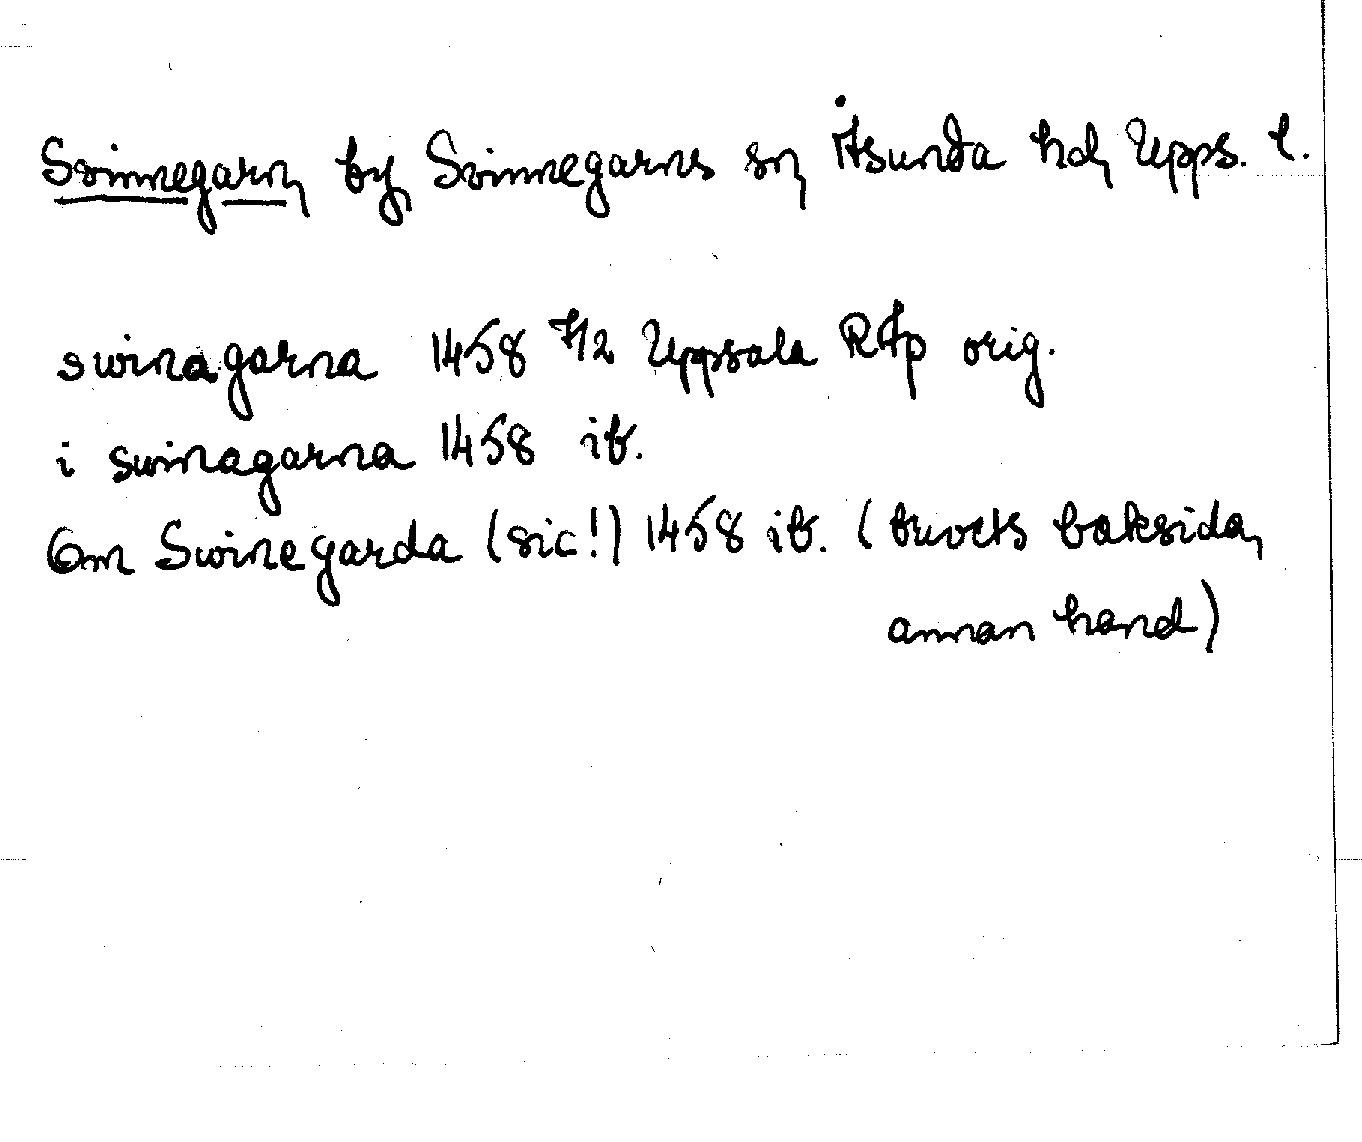 Svinnegarn, by, Svinnegarns sn, Åsunda hd, Upps. l.
swinagarna 1458 7/2 Uppsala RAp orig.
i swinagarna 1458 ib.
Om Swinegarda (sic!) 1458 ib. (brevets baksida,
annan hand)